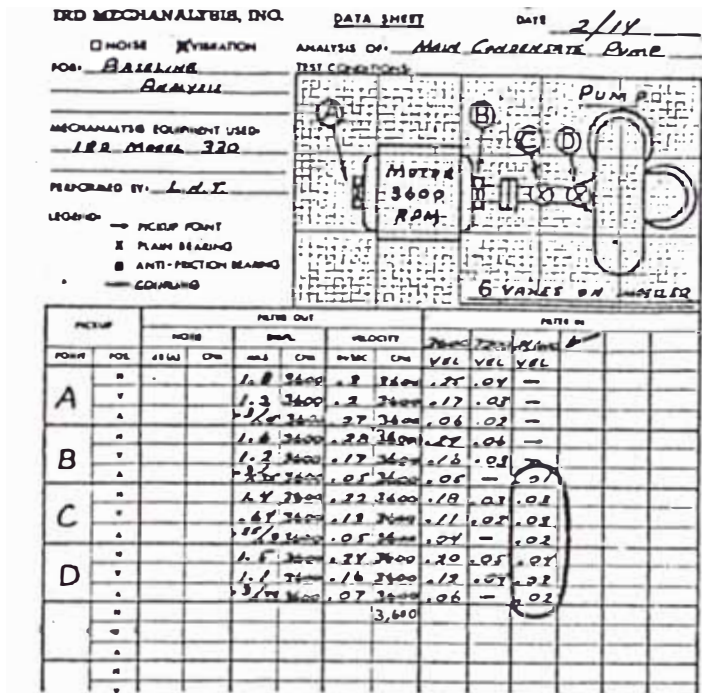 IRD MECHANALYSIS, INC.
DATA SHEET
DATE 2/14
NOISE VIBRATION
ANALYSIS OF: MAIN CONDENSATE PUMP
FOR: BASELINE
ANALYSIS
TEST CONDITIONS:
MECHANALYSIS EQUIPMENT USED:
IRD MODEL 320
PERFORMED BY: L.N.T.
LEGEND:
PICKUP POINT
X PLAIN BEARING
ANTI-FRICTION BEARING
COUPLING
PUMP
A
B
C
D
MOTOR
3600
RPM
6 VANES ON IMPELLER
PICKUP FILTER OUT FILTER IN
NOISE DISPL VELOCITY 3600 7200
POINT POS. CPM MILS CPM IN/SEC CPM VEL VEL VEL
A H 1.8 3600 3600 .25 .04 —
V 1.2 3600 .2 3600 .17 .03 —
A 3600 .27 3600 .06 .02 —
B H 1.6 3600 .28 3600 .06 —
V 1.2 3600 .17 3600 .16 .03
A 3600 .05 3600 .05 — .01
C H 1.4 3600 .22 3600 .18 .03 .03
V 3600 .12 3600 .11 .02 .03
A 3600 .05 3600 .04 — .02
D H 1.5 3600 .24 3600 .20 .05 .04
V 1.1 3600 .16 3600 .12 .03
A 3600 .07 3600 .06 — .02
H 3,600
V
A
H
V